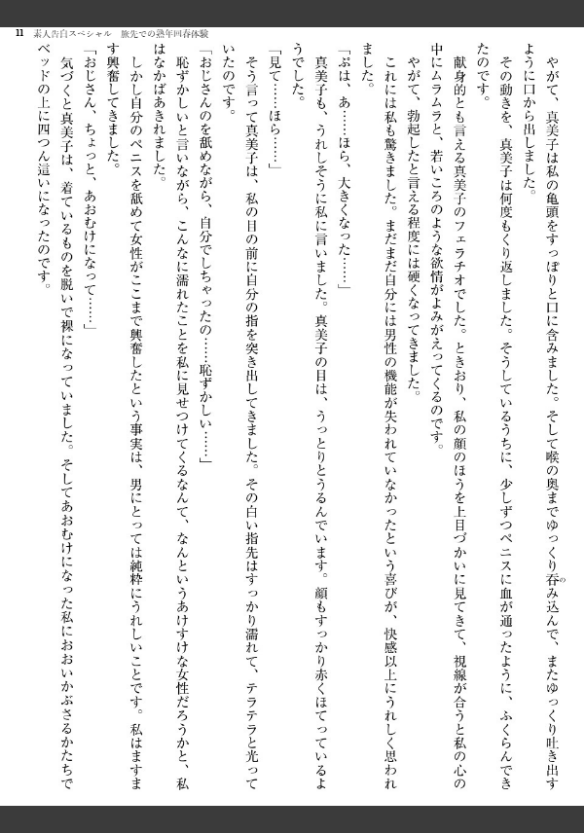 11 素人告白スペシャル 旅先での熟年回春体験
やがて、真美子は私の亀頭をすっぽりと口に含みました。そして喉の奥までゆっくり呑み込んで、またゆっくり吐き出す
ように口から出しました。
その動きを、真美子は何度もくり返しました。そうしているうちに、少しずつペニスに血が通ったように、ふくらんでき
たのです。
献身的とも言える真美子のフェラチオでした。ときおり、私の顔のほうを上目づかいに見てきて、視線が合うと私の心の
中にムラムラと、若いころのような欲情がよみがえってくるのです。
やがて、勃起したと言える程度には硬くなってきました。
これには私も驚きました。まだまだ自分には男性の機能が失われていなかったという喜びが、快感以上にうれしく思われ
ました。
「ぷは、あ……ほら、大きくなった……」
真美子も、うれしそうに私に言いました。真美子の目は、うっとりとうるんでいます。顔もすっかり赤くほてっているよ
うでした。
「見て……ほら……」
そう言って真美子は、私の目の前に自分の指を突き出してきました。その白い指先はすっかり濡れて、テラテラと光って
いたのです。
「おじさんのを舐めながら、自分でしちゃったの……恥ずかしい……」
恥ずかしいと言いながら、こんなに濡れたことを私に見せつけてくるなんて、なんというあけすけな女性だろうかと、私
はなかばあきれました。
しかし自分のペニスを舐めて女性がここまで興奮したという事実は、男にとっては純粋にうれしいことです。私はますま
す興奮してきました。
「おじさん、ちょっと、あおむけになって……」
気づくと真美子は、着ているものを脱いで裸になっていました。そしてあおむけになった私におおいかぶさるかたちで
ベッドの上に四つん這いになったのです。